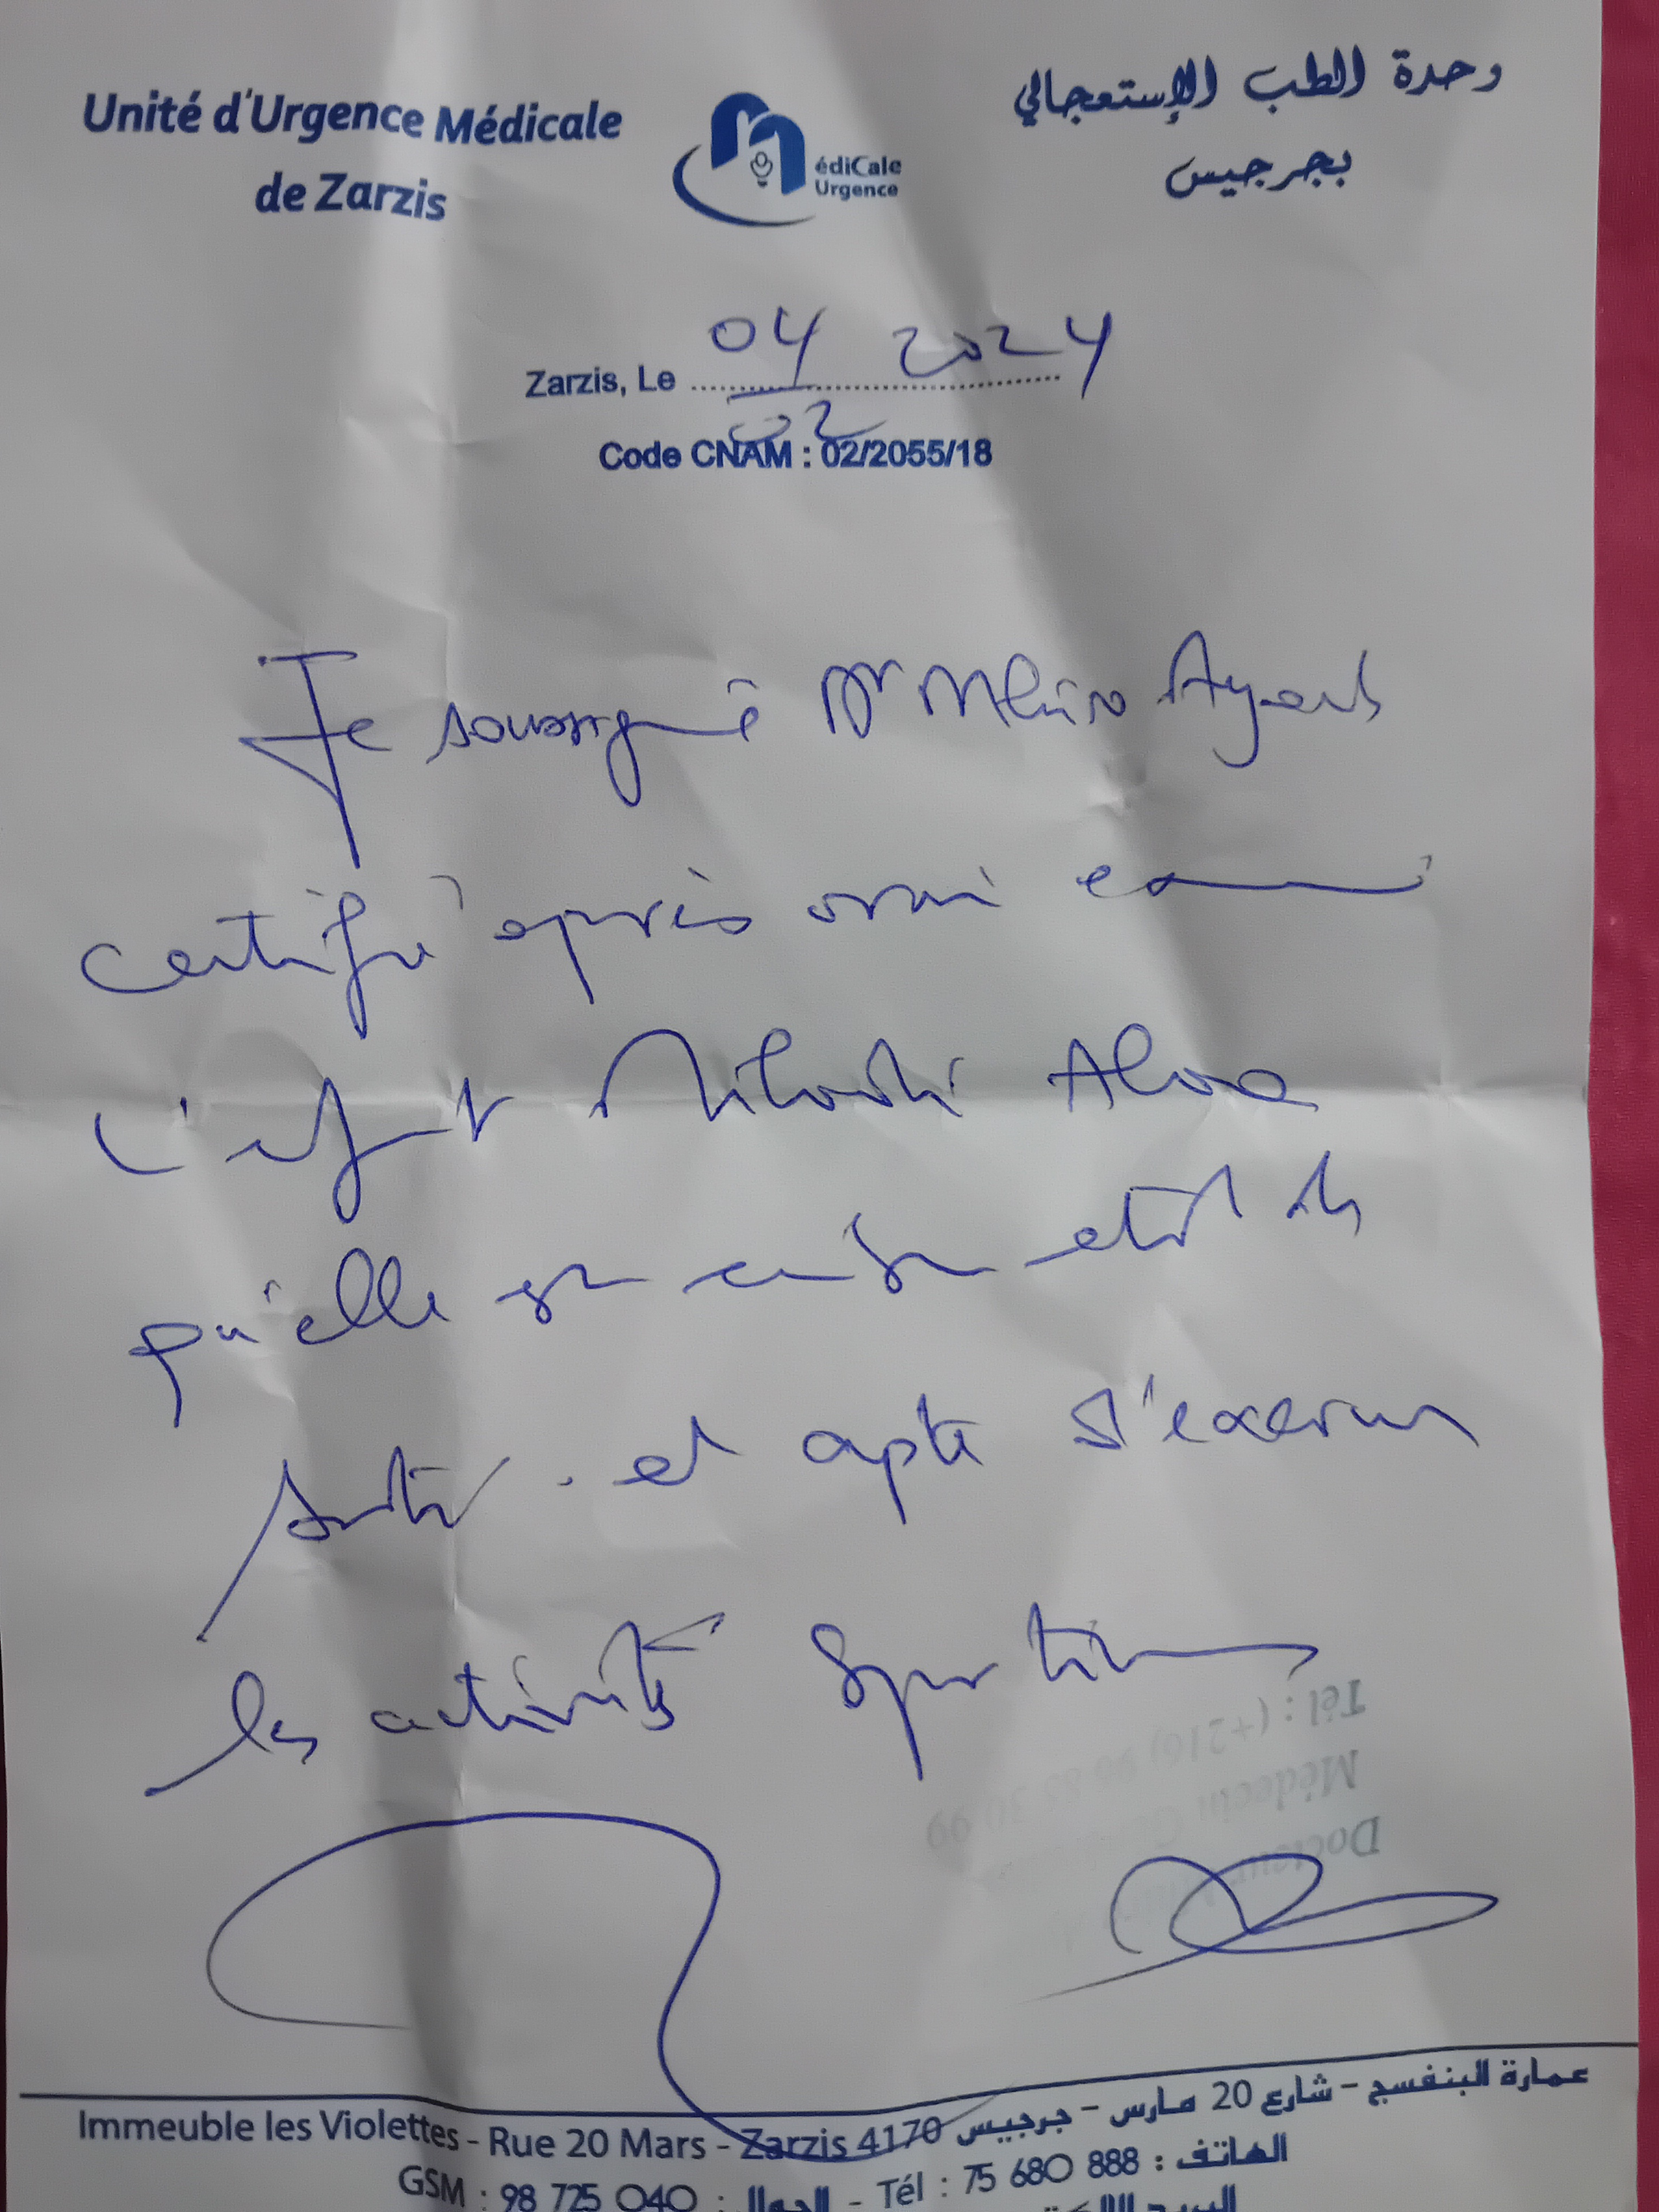 Unité d'Urgence Médicale
de Zarzis
édiCale
Urgence
وحدة الطب الإستعجالي
بجرجيس
Zarzis, Le 04 02 2024
Code CNAM : 02/2055/18
Je soussigné Dr Ayoub
certifie après
l'enfant
qu'elle est en bon état de
santé et apte d'exercer
les activités sportives
Tél : (+216)
Médecin
Docteur
عمارة البنفسج - شارع 20 مارس - جرجيس
Immeuble les Violettes - Rue 20 Mars - Zarzis 4170
GSM : 98 725 040 : الجوال - Tél : 75 680 888 : الهاتف